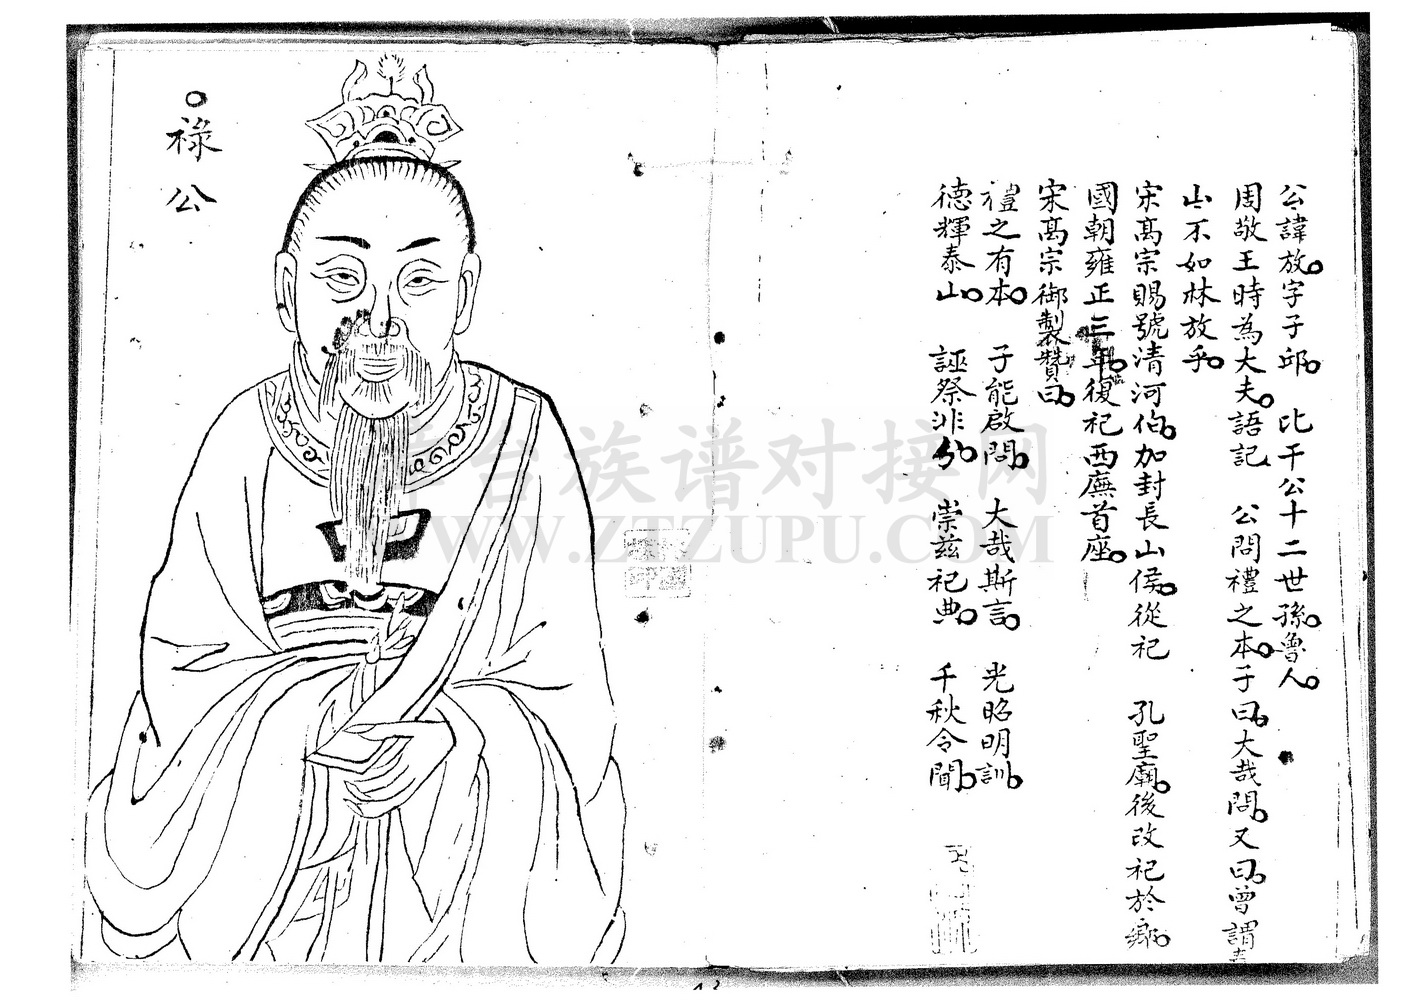 公諱放。字子邱。 比干公十二世孫。魯人。
周敬王時為大夫。語記 公問禮之本。子曰。大哉問。又曰。曾謂泰
山不如林放乎。
宋高宗賜號清河伯。加封長山侯。從祀 孔聖廟。後改祀於鄉。
國朝雍正三年。復祀西廡首座。
宋高宗御製贊曰。
禮之有本。 子能啟問。 大哉斯言。 光昭明訓。
德輝泰山。 誣祭非分。 崇兹祀典。 千秋令聞。
祿公
台族谱对接网
WWW.ZTZUPU.COM